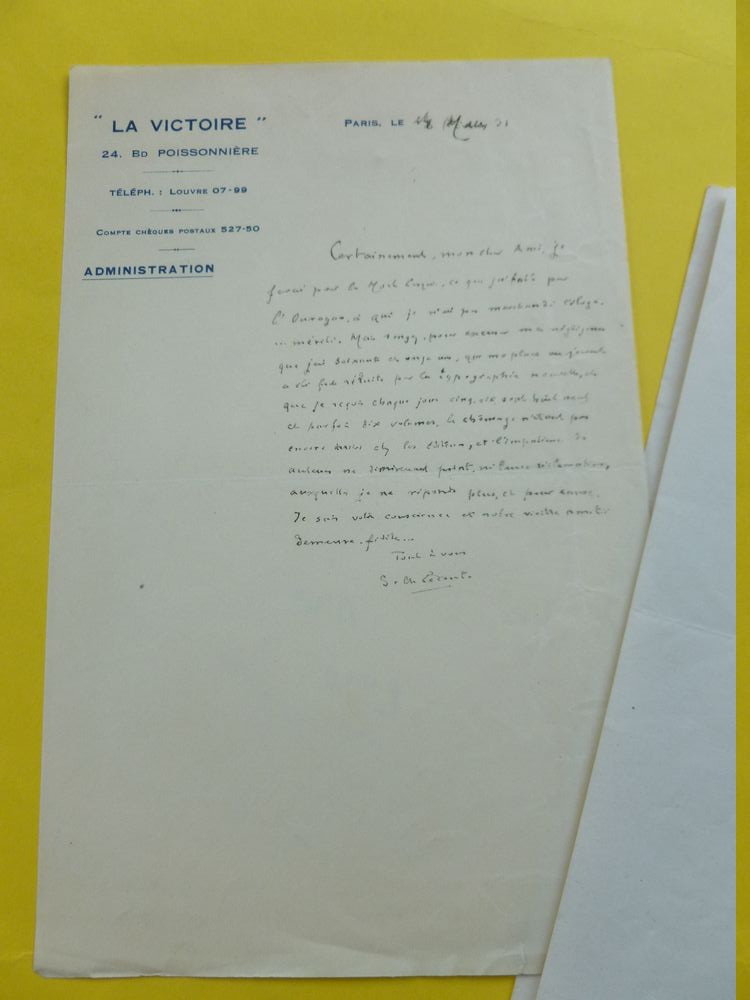 " LA VICTOIRE "
24. BD POISSONNIÈRE
TÉLÉPH. : LOUVRE 07-99
COMPTE CHÈQUES POSTAUX 527-50
ADMINISTRATION
PARIS, LE Mars 31
Certainement, mon cher Ami, je
ferai pour le ce que j'ai fait pour
l'Ouragan, à qui je n'ai pas marchandé
mérité. Mais songez, pour excuser ma négligence
que j'ai soixante et onze ans, que ma place au journal
a été réduite par la typographie nouvelle, et
que je reçois chaque jour cinq, six, sept, huit, neuf
et parfois dix volumes, le chômage n'étant pas
encore chez les éditeurs, et l'impatience de
auteurs ne point, ni leurs réclamations,
auxquelles je ne réponds plus, et pour cause.
Je sais votre conscience et notre vieille amitié
demeure fidèle...
Tout à vous